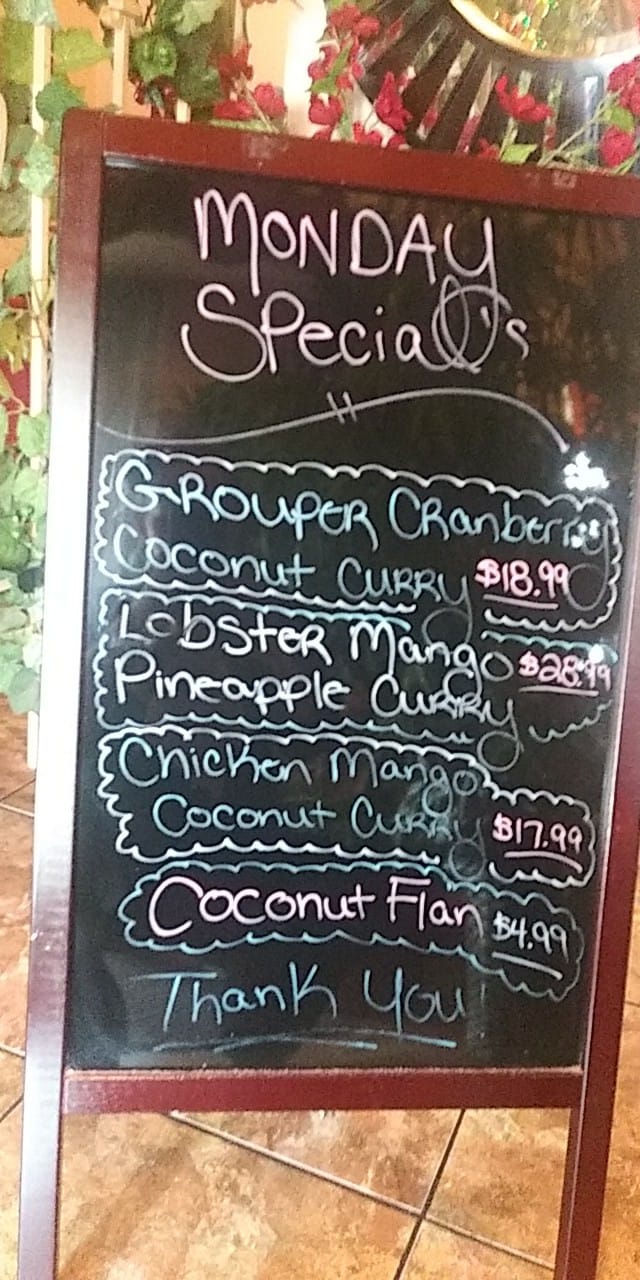 MONDAY
Special's
GROUPER CRanberry
Coconut CURRY $18.99
LobsteR Mango $28.99
Pineapple CURRY
Chicken Mango
Coconut CURRY $17.99
Coconut Flan $4.99
Thank You!